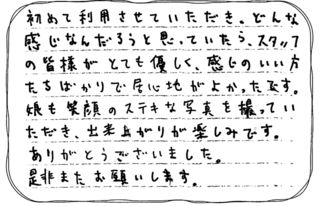 初めて利用させていただき、どんな
感じなんだろうと思っていたら、スタッフ
の皆様がとても優しく、感じのいい方
たちばかりで居心地がよかったです。
娘も笑顔のステキな写真を撮ってい
ただき、出来上がりが楽しみです。
ありがとうございました。
是非またお願いします。